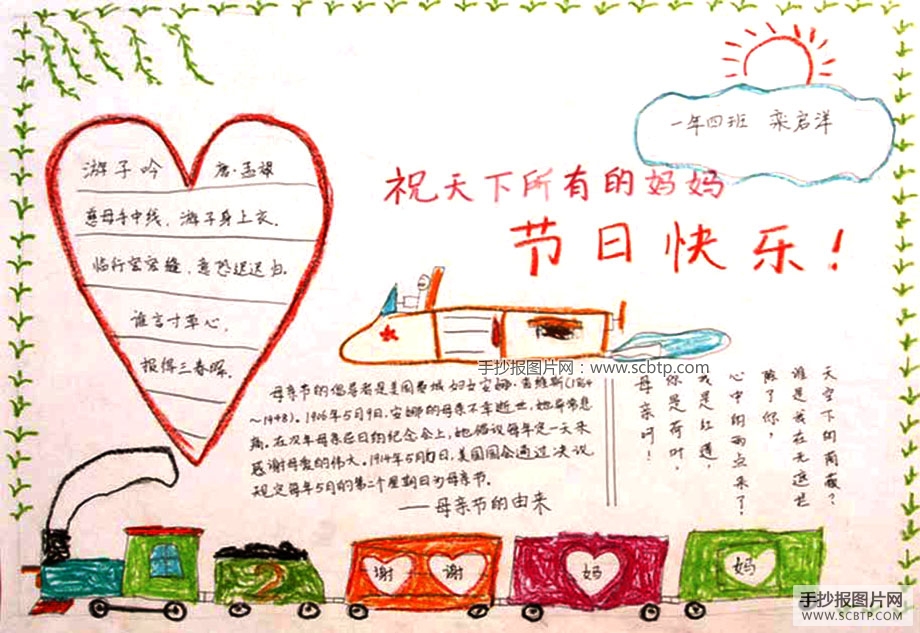 一年四班 栾启洋
祝天下所有的妈妈
节日快乐!
游子吟 唐·孟
慈母手中线,游子身上衣.
临行密密缝,意恐迟迟归.
谁言寸草心,
报得三春晖.
手抄报图片网:www.scbtp.com
母亲节的倡导者是美国费城妇女安娜·吉维斯(1864
~1948)。1906年5月9日,安娜的母亲不幸逝世,她异常悲
痛。在次年母亲忌日的纪念会上,她倡议每年定一天来
感谢母爱的伟大。1914年5月日,美国国会通过决议
规定每年5月的第二个星期日为母亲节。
——母亲节的由来
母亲呵!
你是荷叶,
我是红莲,
心中的雨点来了,
除了你,
谁是我在无遮
天空下的荫蔽?
谢 谢 妈 妈
手抄报图片网
WWW.SCBTP.COM